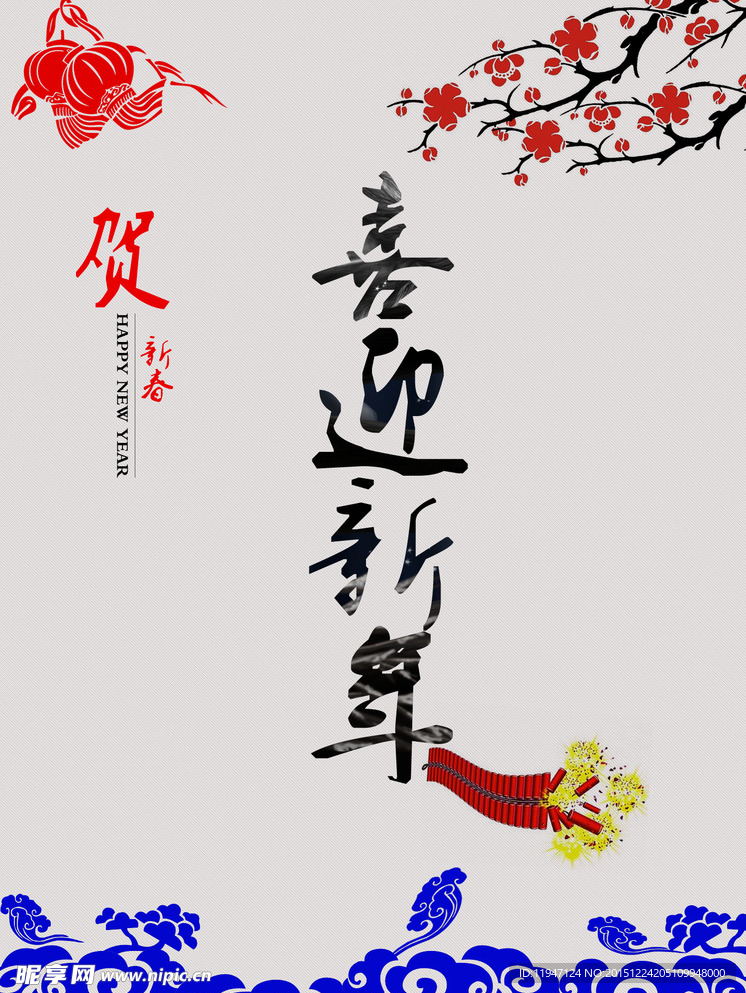 贺
新春
HAPPY NEW YEAR
喜迎新年
昵享网 www.nipic.cn
ID:11947124 NO:20151224205109948000